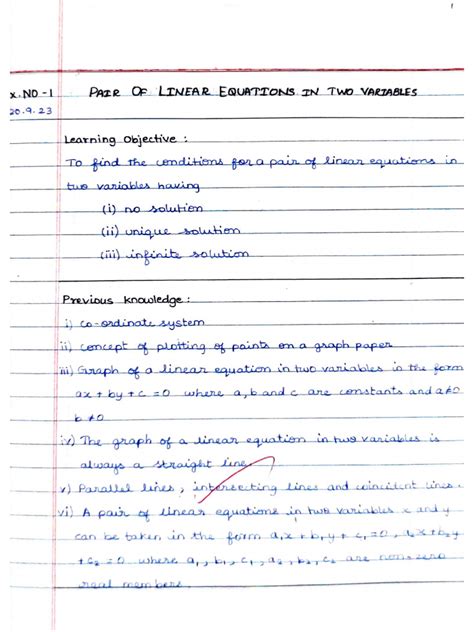 1
x.NO-1 PAIR OF LINEAR EQUATIONS IN TWO VARIABLES
20.9.23
Learning Objective :
To find the conditions for a pair of linear equations in
two variables having
(i) no solution
(ii) unique solution
(iii) infinite solution
Previous knowledge :
i) Co-ordinate system
ii) Concept of plotting of points on a graph paper
iii) Graph of a linear equation in two variables in the form
ax + by + c = 0 where a, b and c are constants and a≠0
b ≠0
iv) The graph of a linear equation in two variables is
always a straight line
v) Parallel lines, intersecting lines and coincident lines.
vi) A pair of linear equations in two variables x and y
can be taken in the form a₁x + b₁y + c₁ =0, a₂x + b₂y
+c₂ = 0 where a₁, b₁, c₁, a₂, b₂, c₂ are non-zero
real members.